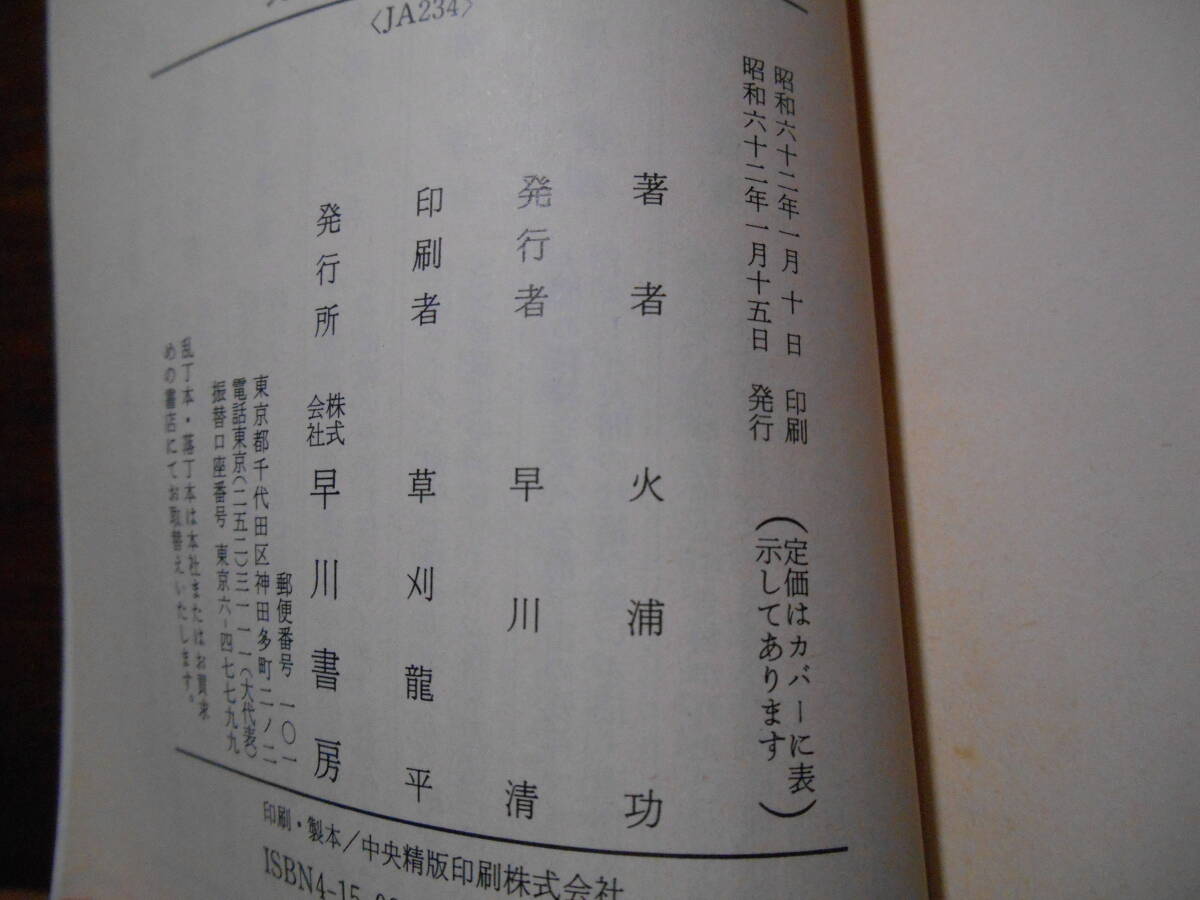 〈JA234〉
昭和六十二年一月十日 印刷
昭和六十二年一月十五日 発行
（定価はカバーに表
示してあります）
著者 火浦功
発行者 早川清
印刷者 草刈龍平
発行所 株式会社 早川書房
郵便番号 一〇一
東京都千代田区神田多町二ノ二
電話東京（二五二）三一一一（大代表）
振替口座番号 東京六-四七七九九
乱丁本・落丁本は本社またはお買求
めの書店にてお取替えいたします。
印刷・製本／中央精版印刷株式会社
ISBN4-15